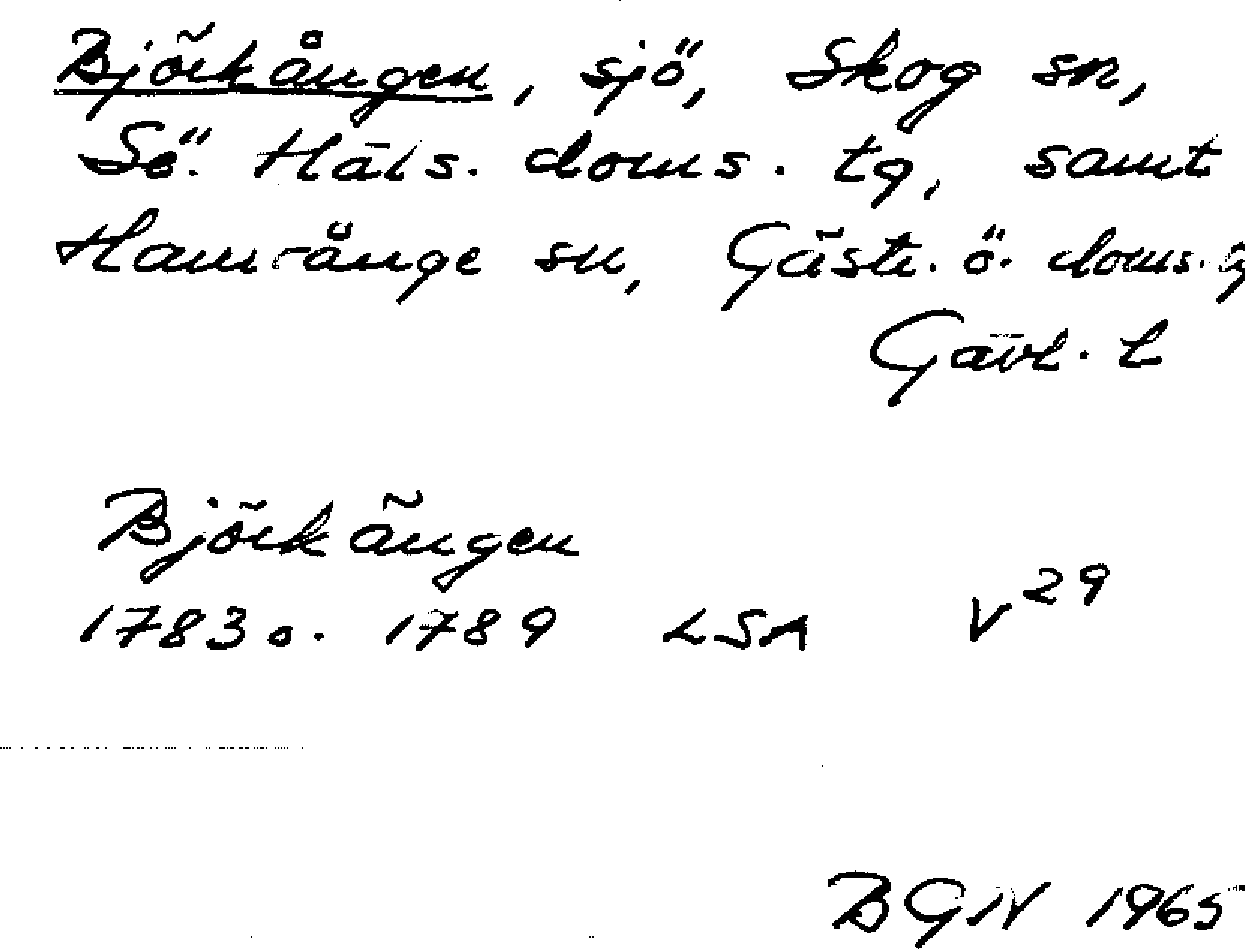 Björkången, sjö, Skog sn,
Sö. Häls. doms. tg, samt
Hamrånge sn, Gästr. ö. doms. tg
Gävl. l
Björkängen
1783 o. 1789 LSA V 29
BGN 1965